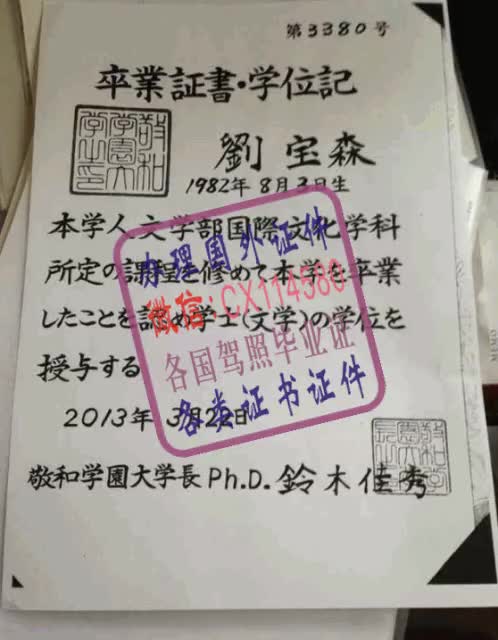 第3380号
卒業証書・学位記
敬和
学園大
学之印
劉宝森
1982年8月3日生
本学人文学部国際文化学科
所定の課程を修めて本学を卒業
したことを認め学士(文学)の学位を
授与する
2013年3月22日
敬和学園大学長 Ph.D. 鈴木佳秀
敬和学
園大学
長之印
办理国外证件
微信:CX114580
各国驾照毕业证
各类证书证件